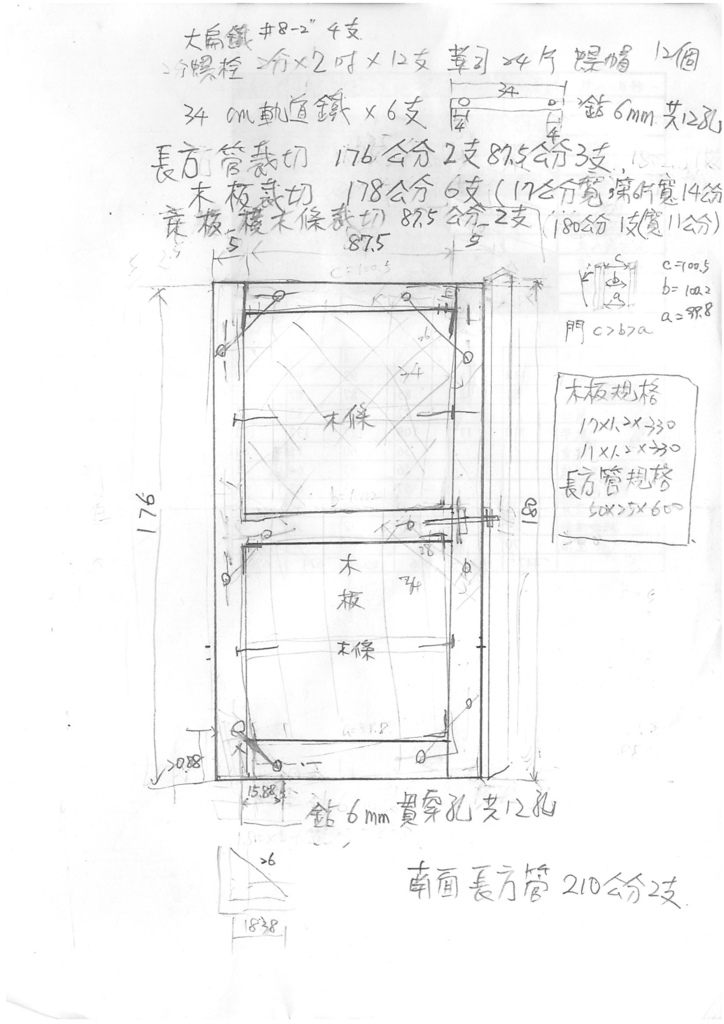 大扁鐵 #8-2" 4支
2分螺栓 2分×2吋×12支 華司 24片 螺帽 12個
34
34 cm 軌道鐵 × 6支 鑽6mm 共12孔
4 4
長方管裁切 176公分 2支 87.5公分 3支
木板裁切 178公分 6支 (17公分寬 第6片寬14公分
木條裁切 87.5公分 2支 180公分 1支(寬11公分)
5 87.5 5
c=100.5
c
b
a
c=100.5
b=100.2
a=99.8
門 c>b>a
木板規格
17×1.2×330
11×1.2×330
長方管規格
50×25×600
26
34
木條
176
180
木
板
34
木條
20.88
15.88
鑽6mm 貫穿孔 共12孔
26
18.38
南面 長方管 210公分 2支